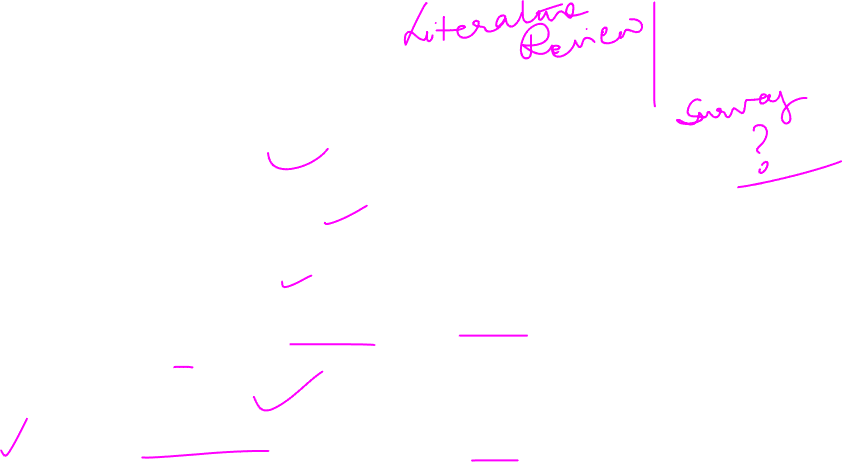 Literature
Review
Survey
?